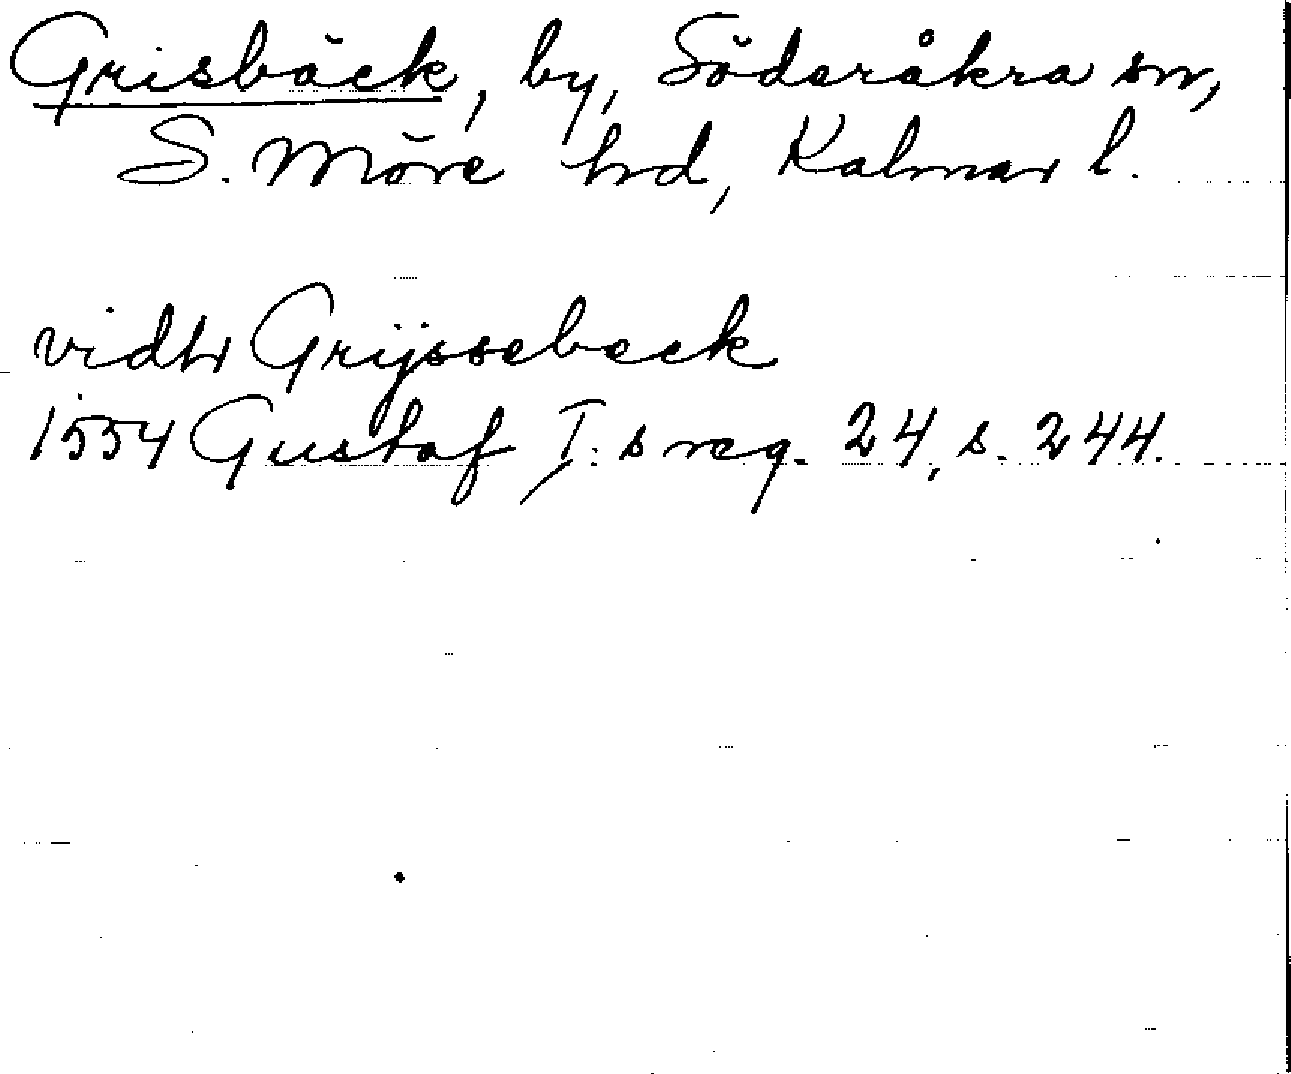 Grisbäck, by, Söderåkra sn,
S. Möre hd, Kalmar l.
vidh Grijssebeck
1554 Gustaf I:s reg. 24, s. 244.